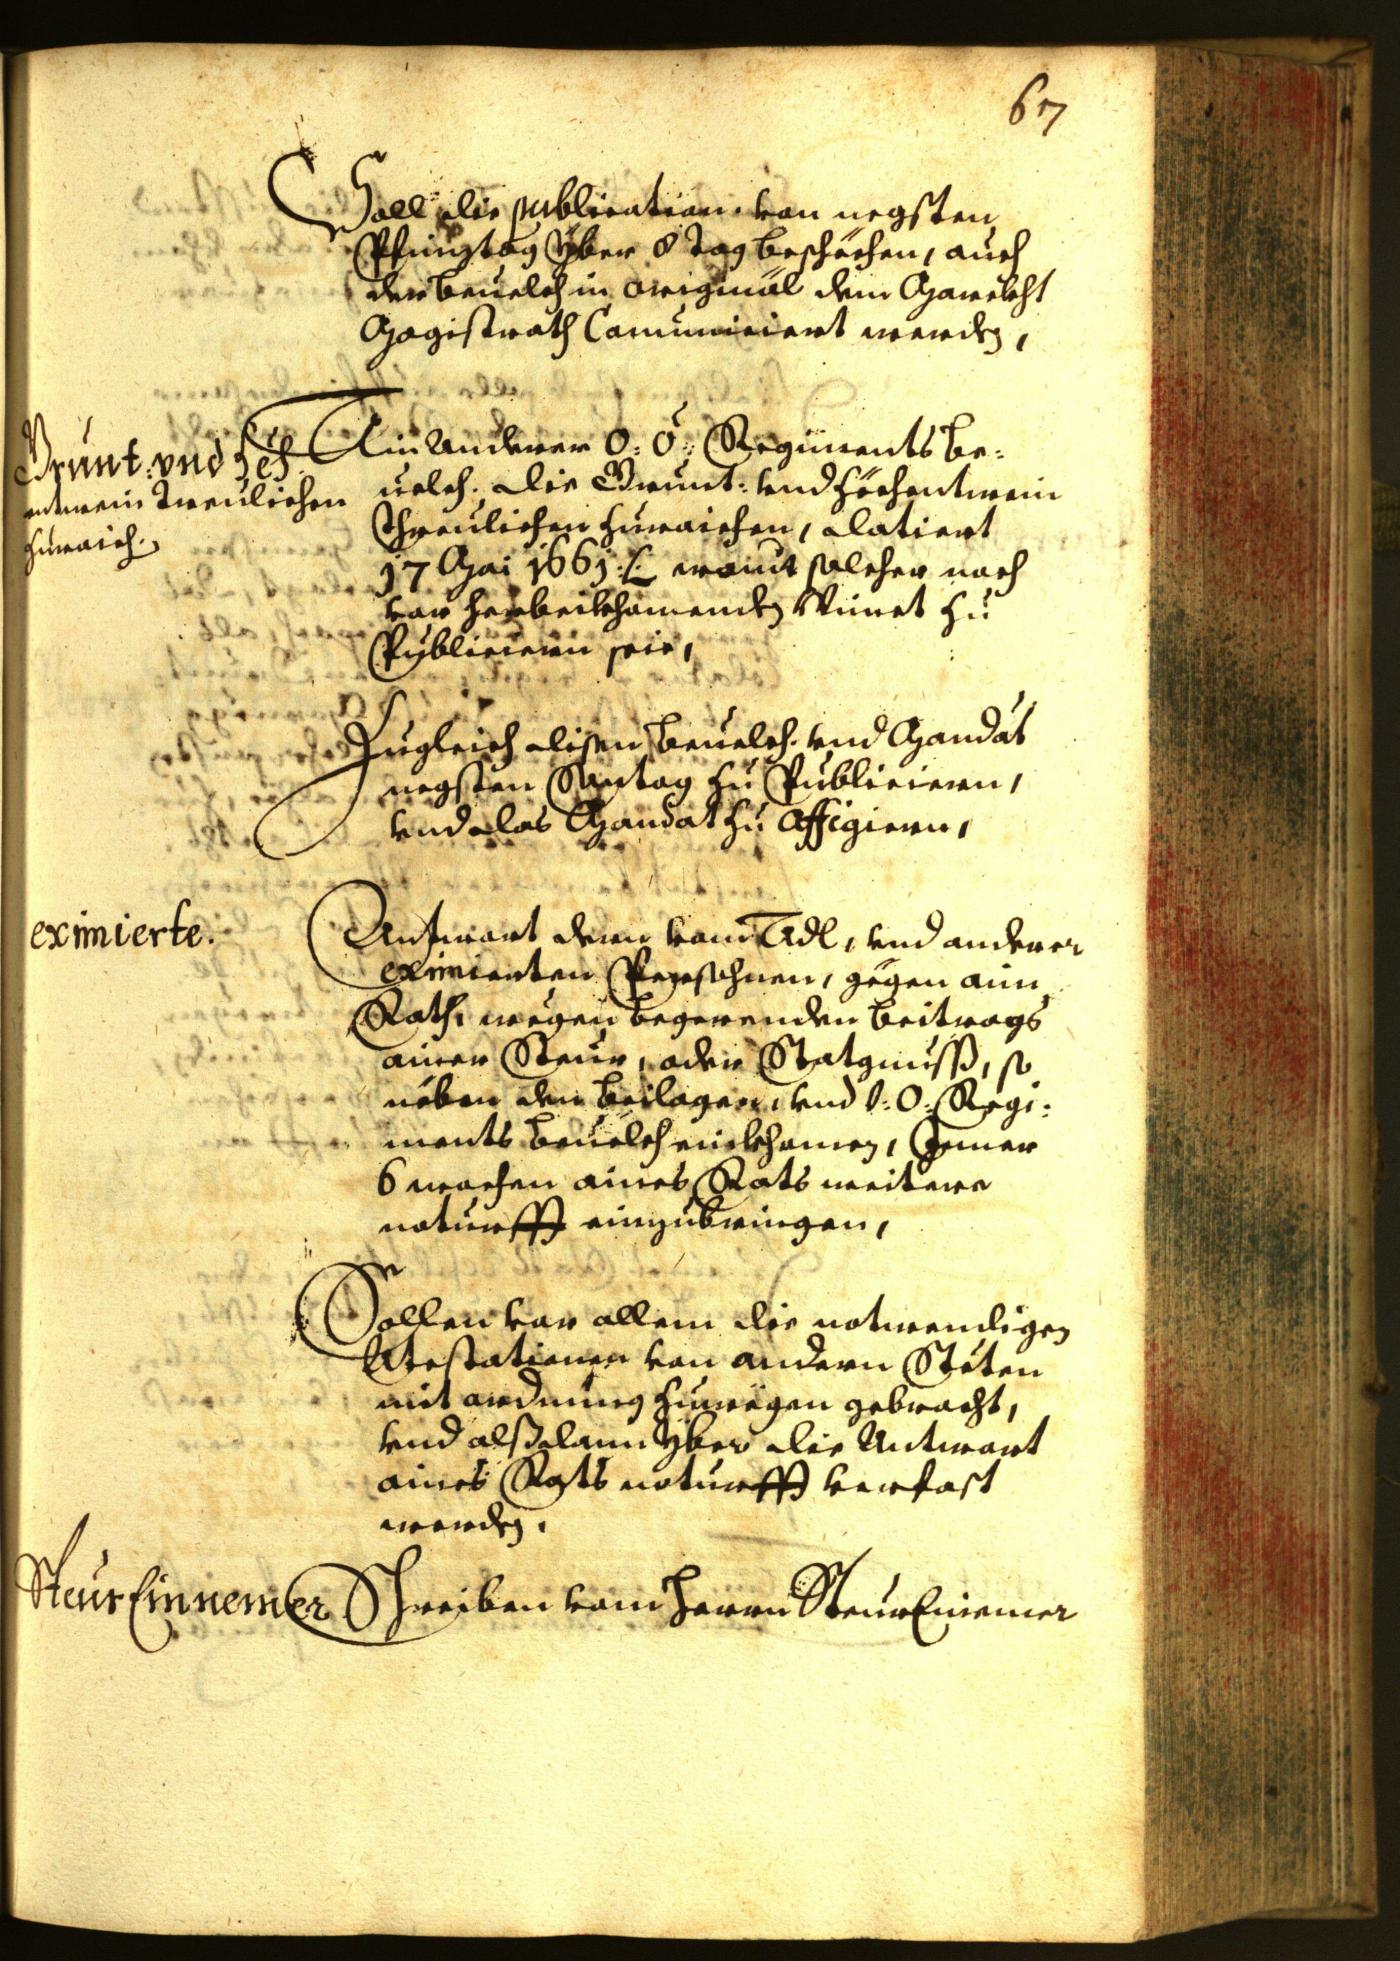 67
Soll die publication von negsten
Pfinztag yber 8 tag beschechen, auch
der beuelch in original dem Marckht
Magistrath Comuniciert werden,
Grunt: vnd Zech
entwein Treulichen
zuraich.
Ain Anderer O: Ö: Regiments be-
uelch. die Grunt: vnd Zöchentwein
Threulichen zuraichen, datiert
17 Mai 1661. wramit solcher noch
vor herbeikhomenden Wimet zu
Publiciern seie,
Zugleich disen beuelch vnd Mandat
negsten Sontag zu Publiciern,
vnd das Mandat zu Affigiern,
eximierte.
Antwort deren vom Adl, vnd anderer
eximierten Persohnen, gegen aim
Rath, wegen begerenden beitrags
ainer Steur, oder Statgnuss, so
neben den beilagen, vnd O: Regi-
ments beuelch einkhomen, Jnner
6 wochen aines Rats weitere
noturfft einzubringen,
Sollen vor allem die notwendigen
Atestationen von andern Steten
mit ordnung zuwegen gebracht,
vnd alßdann yber die Antwort
aines Rats noturfft verfast
werden.
Steur Einnemer
Schreiben vom Herrn Steur Einemer